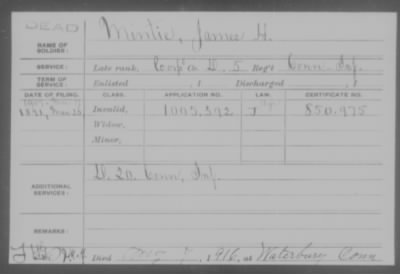 DEAD
NAME OF SOLDIER: Mintie, James H.
SERVICE: Late rank, Corp'l Co. D. 5 Reg't Conn. Inf.
TERM OF SERVICE: Enlisted , 1 Discharged , 1
DATE OF FILING. CLASS. APPLICATION NO. LAW. CERTIFICATE NO.
1891, Mar. 26 Invalid, 1005,392 J 850.975
Widow,
Minor,
ADDITIONAL SERVICES: D. 20. Conn. Inf.
REMARKS:
Died 1916, at Waterbury Conn